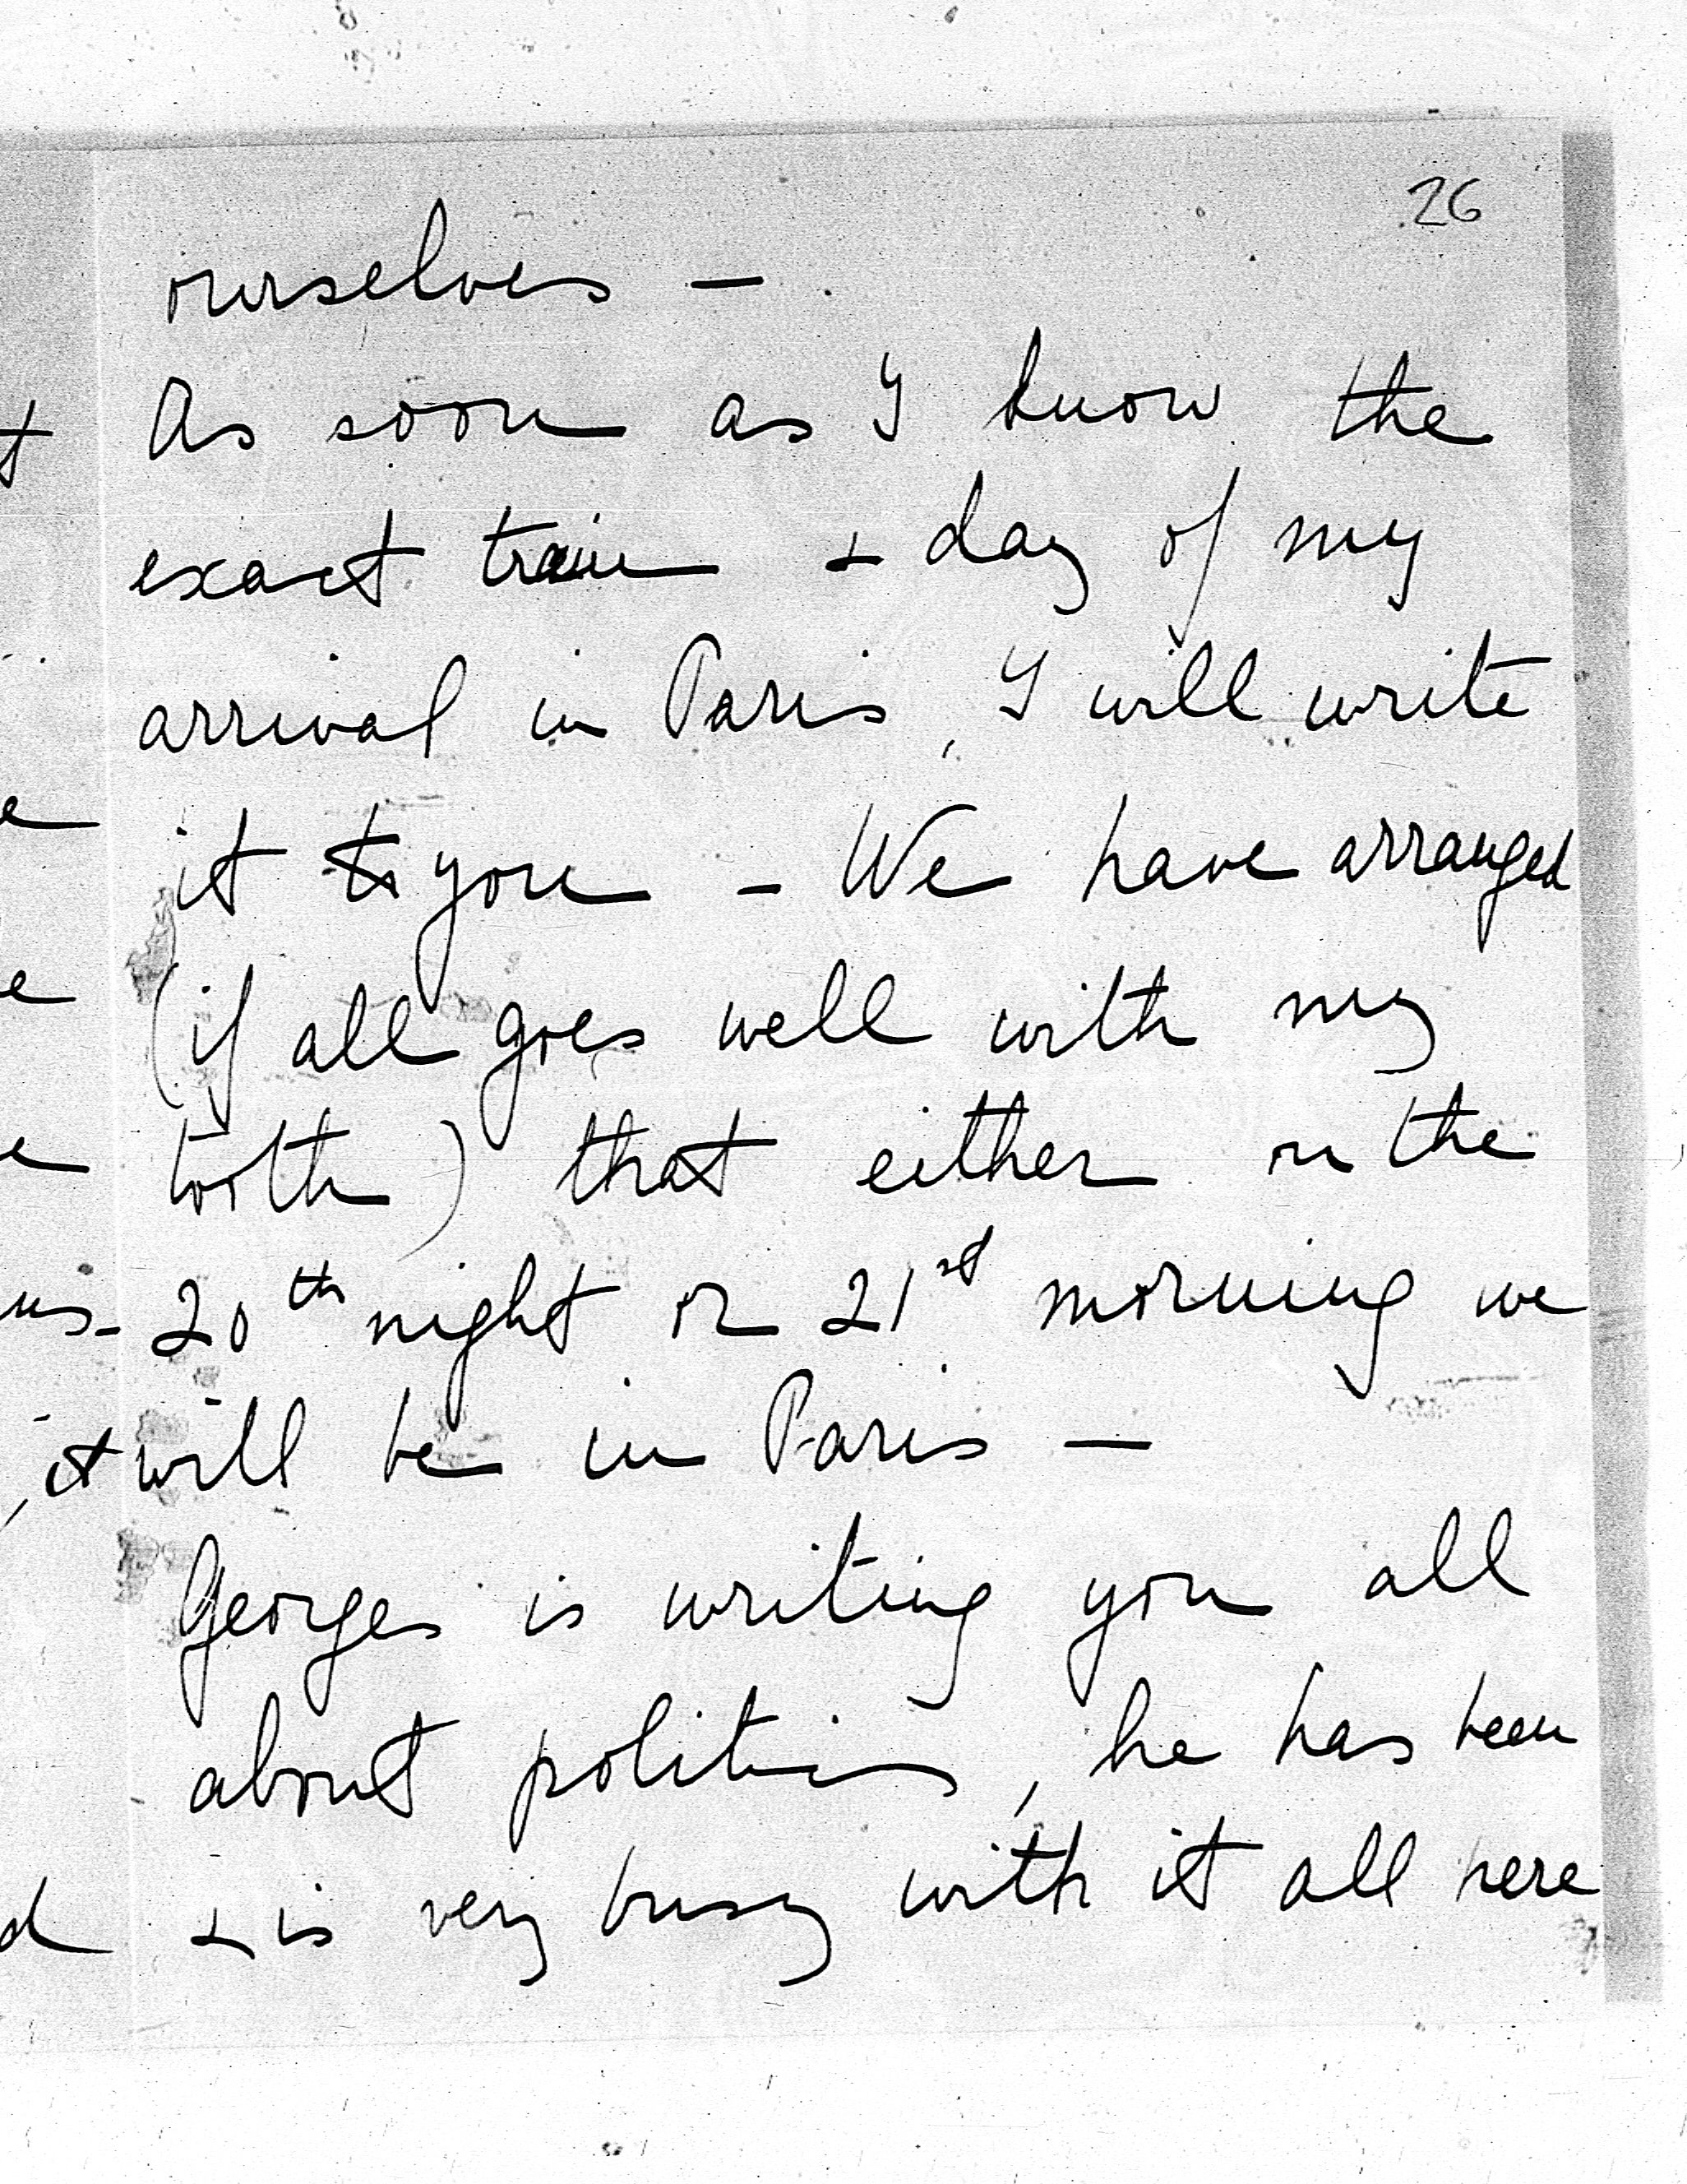 26
ourselves —
As soon as I know the
exact train + day of my
arrival in Paris, I will write
it to you – We have arranged
(if all goes well with my
tooth) that either on the
20th night or 21st morning we
will be in Paris —
Georges is writing you all
about politics, he has been
+ is very busy with it all here